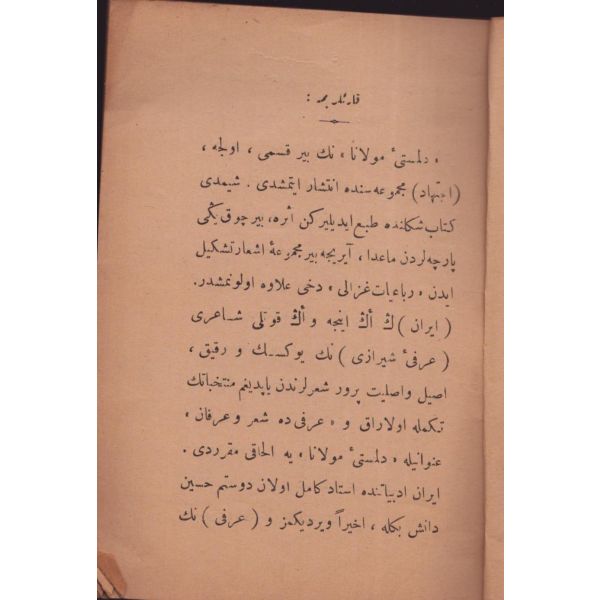 قارئلریمه :
« دلمستئ مولانا » نك بیر قسمی ، اولجه ،
( اجتهاد ) مجموعه سنده انتشار ایتمشدی . شیمدی
كتاب شكلنده طبع ایدیلیركن اثره ، بیر چوق یكی
پارچه لردن ماعدا ، آیریجه بیر مجموعهٔ اشعار تشكیل
ایدن « رباعیات غزالی » دخی علاوه اولونمشدر .
( ایران ) ك أڭ اینجه و أڭ قوتلی شاعری
( عرفئ شیرازی ) نك یوكسك و رقیق ،
اصیل واصلیت پرور شعرلرندن یاپدیغم منتخباتك
تكمله اولاراق و « عرفی ده شعر و عرفان »
عنوانیله « دلمستئ مولانا » یه الحاقی مقرردی .
ایران ادبیاتنده استاد كامل اولان دوستم حسین
دانش بكله ، اخیراً ویردیكمز و ( عرفی ) نك